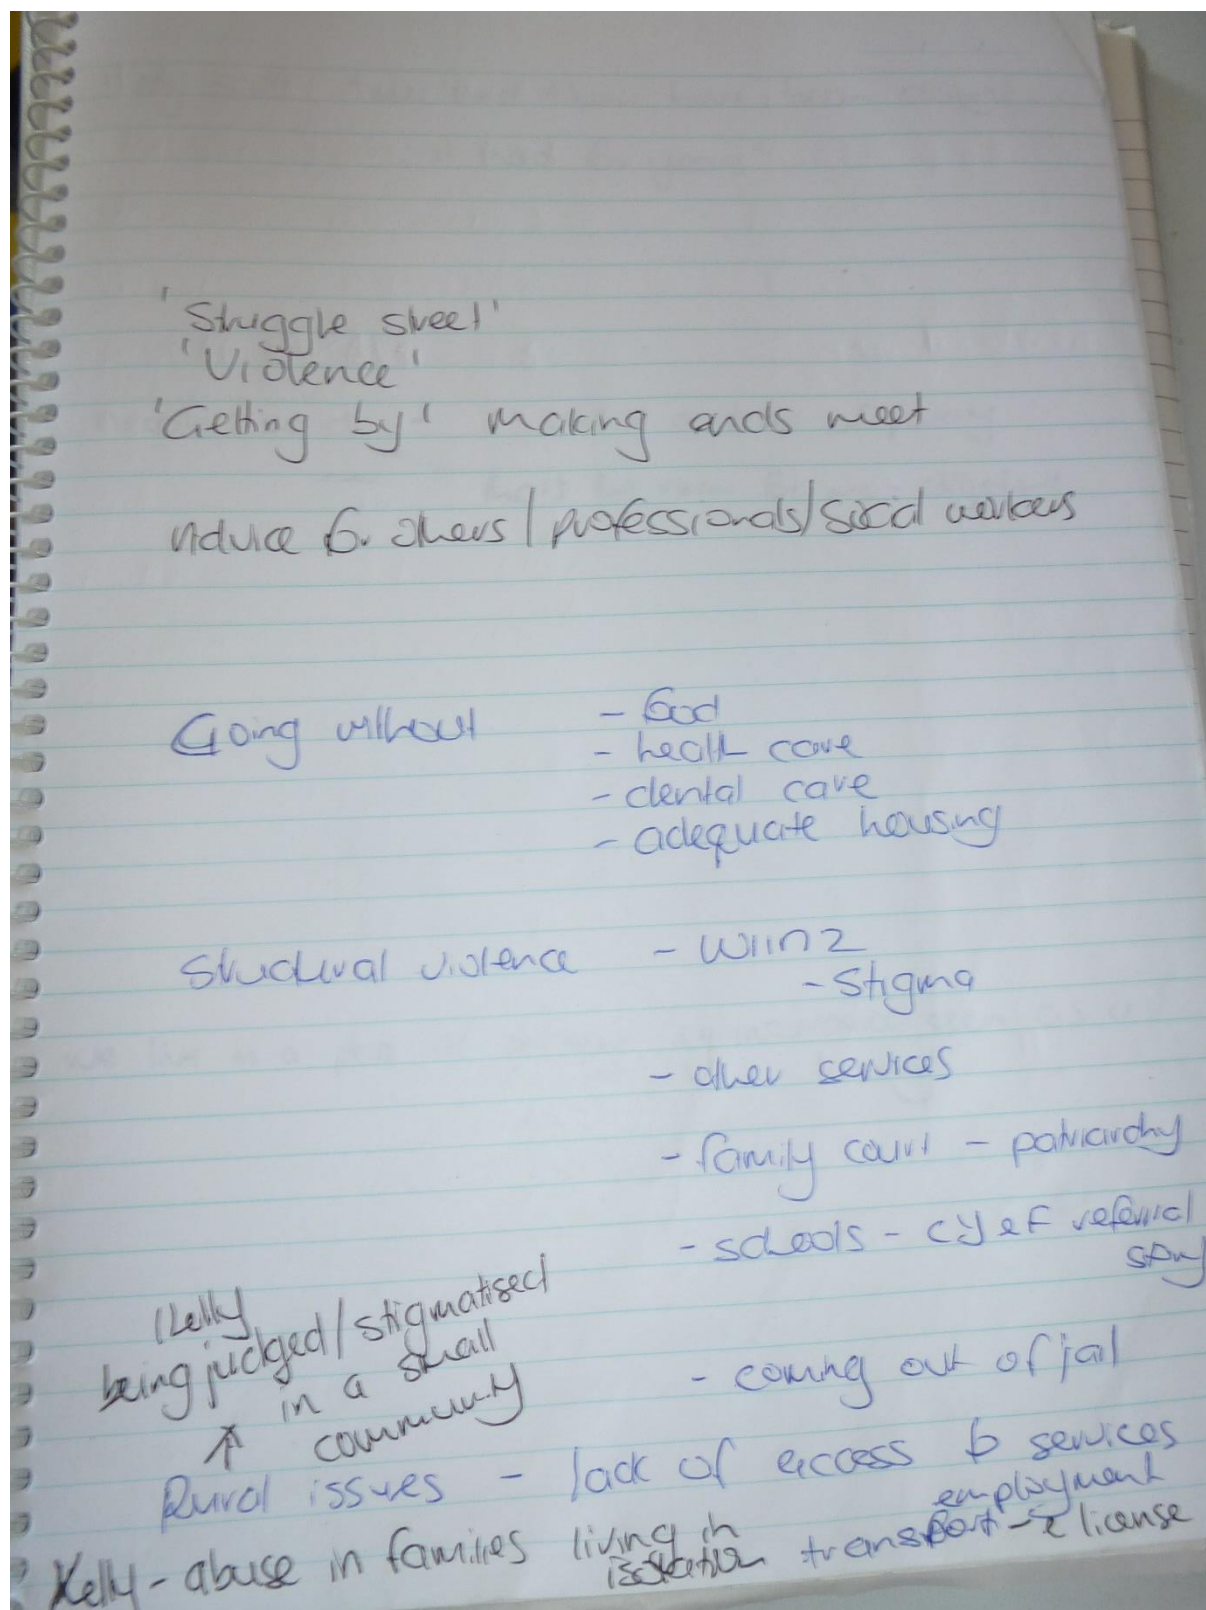 'Struggle street'
'Violence'
'Getting by' making ends meet
Advice for others / professionals / social workers
Going without - food
- health care
- dental care
- adequate housing
Structural violence - WINZ
- Stigma
- other services
- family court - patriarchy
- schools - CYF referral
story
Kelly
being judged / stigmatised
in a small
community
- coming out of jail
Rural issues - lack of access to services
employment
transport - license
Kelly - abuse in families living in
isolation